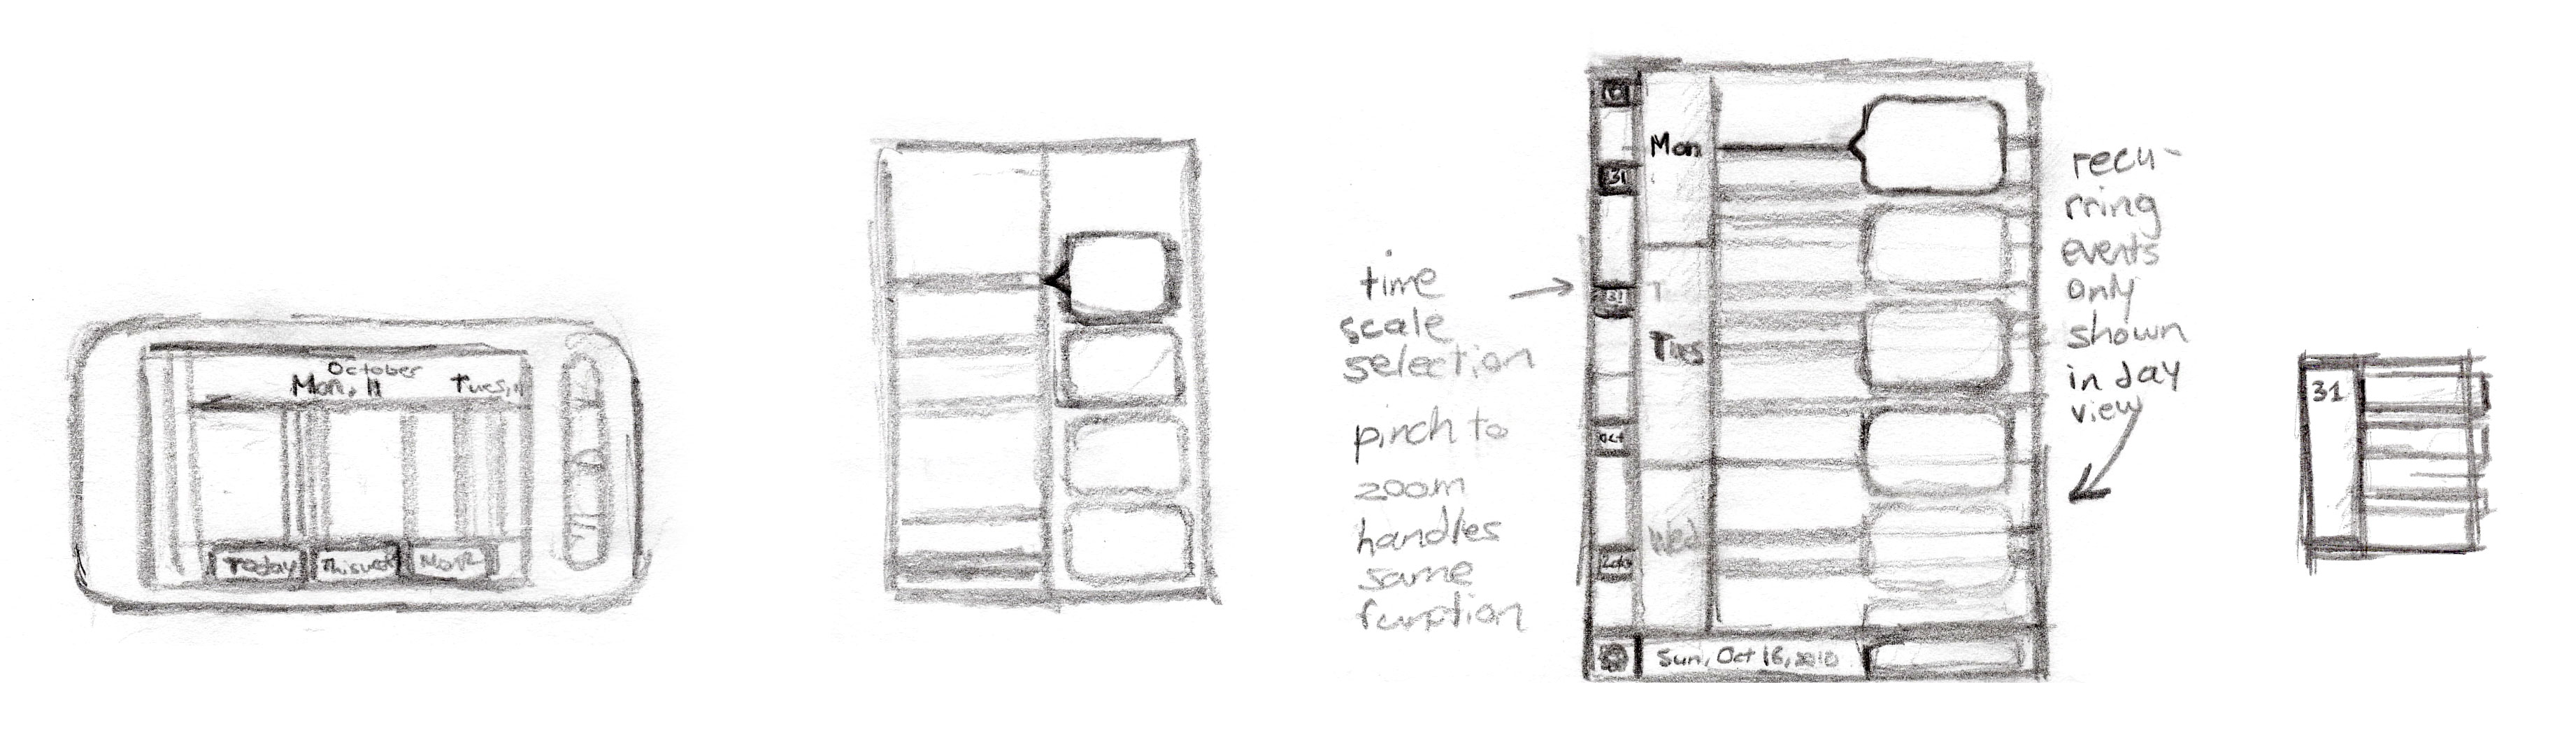 October
Mon, 11 Tues,
Today This week More
time
scale
selection
pinch to
zoom
handles
same
function
31
31
Oct
Mon
Tues
Wed
Sun, Oct 16, 2010
recu-
rring
events
only
shown
in day
view
31